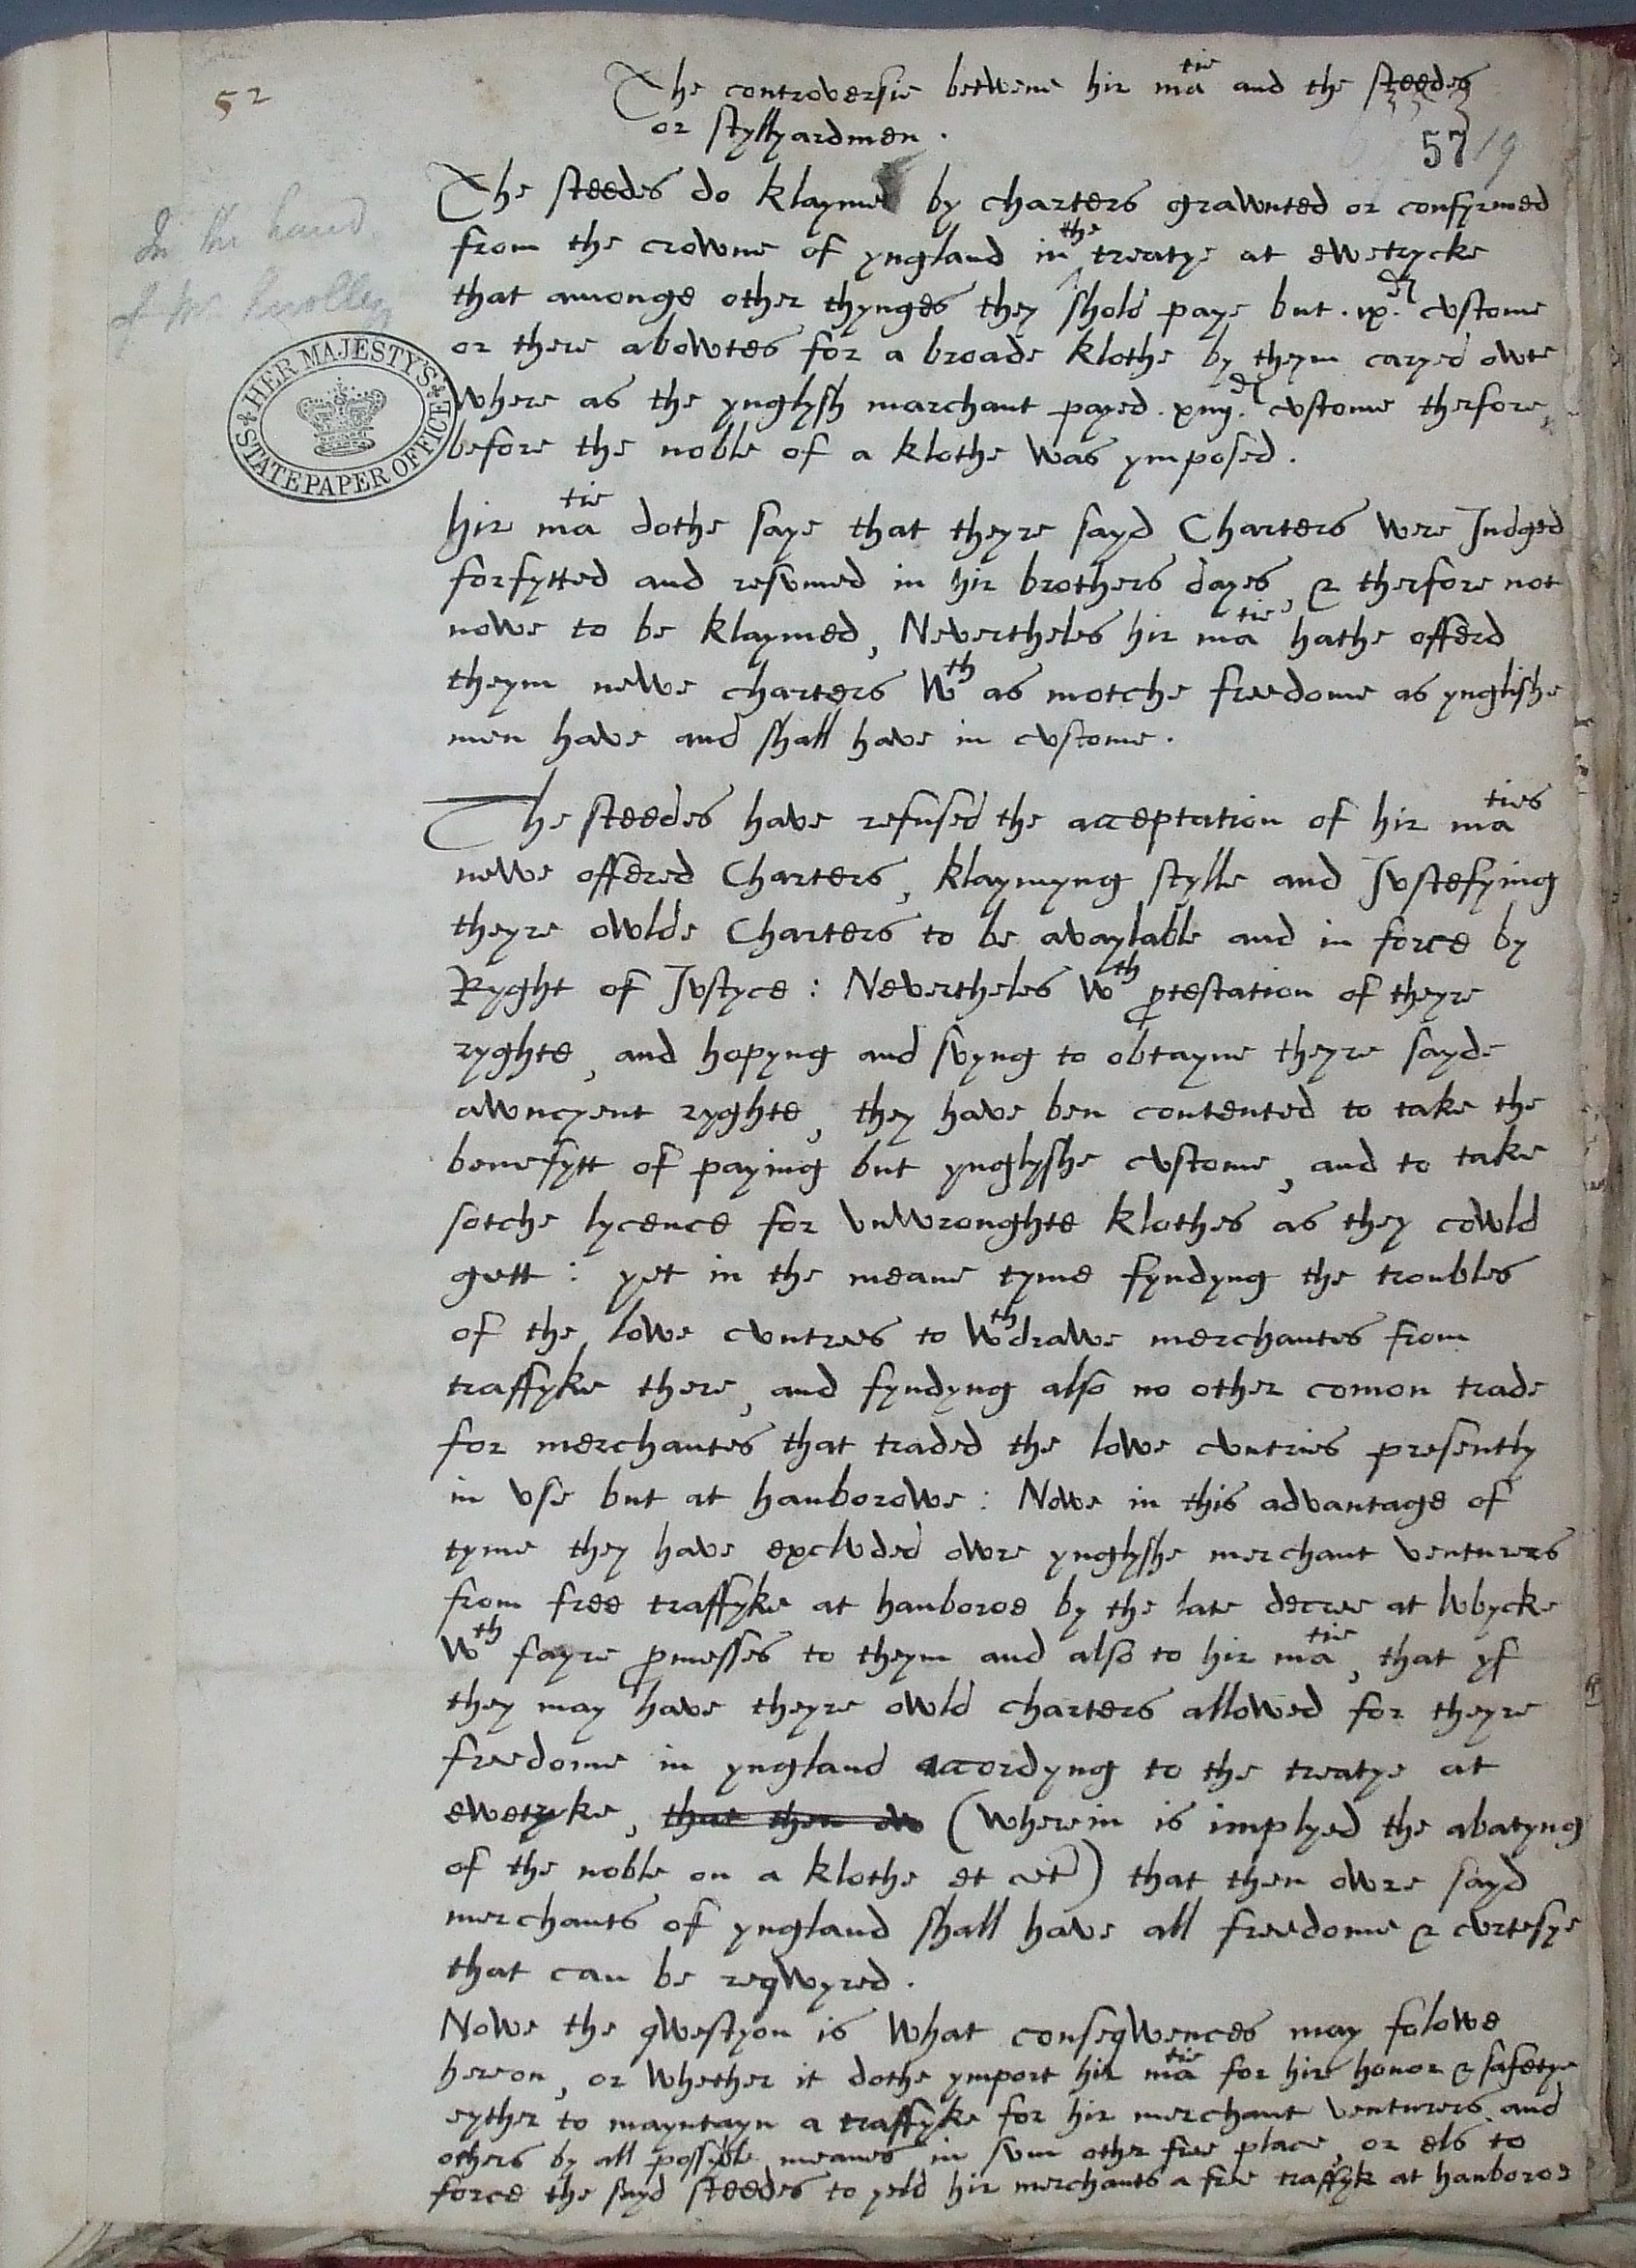 52
The controversie betwene hir ma^tie and the steedes
or styllyardmen .
57
19
In the hand
of Mr. Knollys
The steedes do klayme by charters grawnted or confyrmed
from the crowne of yngland in ^the treatye at ewetrycke
that amonge other thynges they shold paye but . ix.^d custome
or there abowtes for a broade klothe by theym caryed owte
HER MAJESTY'S STATE PAPER OFFICE
where as the ynglysh marchant payed . xiiij.^d custome therfore,
before the noble of a klothe was ymposed .
hir ma^tie dothe saye that theyre sayd Charters were Judged
forfytted and resumed in hir brothers dayes, & therfore not
nowe to be klaymed, Nevertheles hir ma^tie hathe offerd
theym newe charters w^th as motche freedome as ynglishe
men have and shall have in custome .
The steedes have refused the acceptation of hir ma^ties
newe offered Charters, klaymyng stylle and Justefying
theyre owlde Charters to be avaylable and in force by
Ryght of Justyce : Nevertheles w^th ptestation of theyre
ryghte, and hopyng and suyng to obtayne theyre sayde
awncyent ryghte, they have ben contented to take the
benefytt of paying but ynglyshe custome, and to take
sotche lycence for unwroughte klothes as they cowld
gett : yet in the meane tyme fyndyng the troubles
of the lowe cuntrees to w^thdrawe merchantes from
traffyke there, and fyndyng also no other comon trade
for merchantes that traded the lowe cuntries presently
in use but at hanborowe : Nowe in this advantage of
tyme they have excluded owre ynglyshe merchant venturers
from free traffyke at hanboroe by the late decree at lubycke
w^th fayre pmesses to theym and also to hir ma^tie, that yf
they may have theyre owld charters allowed for theyre
freedome in yngland accordyng to the treatye at
ewetryke, that then ow (wherein is implyed the abatyng
of the noble on a klothe et cet) that then owre sayd
merchants of yngland shall have all freedome & curtesye
that can be reqwyred .
Nowe the qwestyon is what conseqwences may folowe
hereon, or whether it dothe ymport hir ma^tie for hir honor & safetye
eyther to mayntayn a traffyke for hir merchant venturers and
others by all possyble meanes in sum other free place, or els to
force the sayd steedes to yeld hir merchants a free traffyk at hanboroe